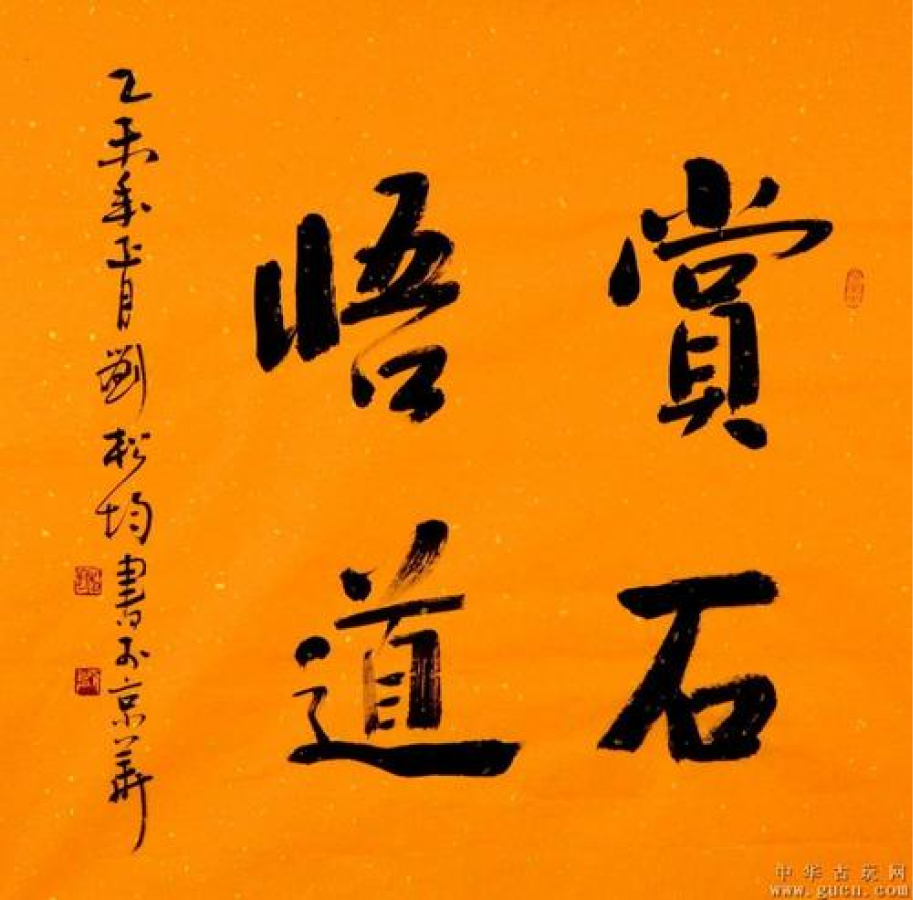 賞石
悟道
乙未年正月劉松均書於京華
中华古玩网
www.gucn.com